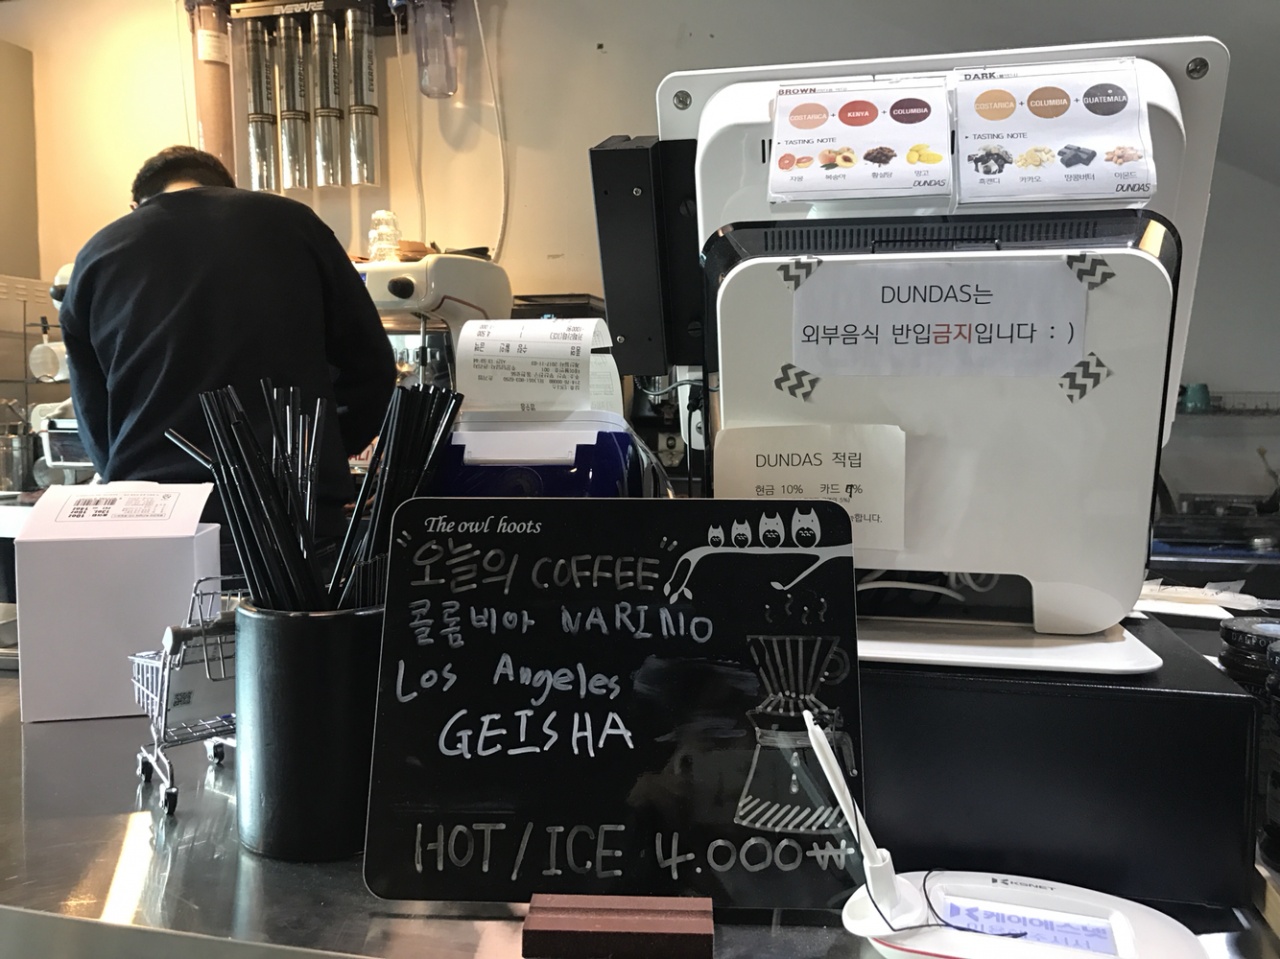 EVERPURE
BROWN
COSTARICA + KENYA + COLUMBIA
TASTING NOTE
자몽 복숭아 황설탕 망고
DUNDAS
DARK
COSTARICA + COLUMBIA + GUATEMALA
TASTING NOTE
흑캔디 카카오 땅콩버터 아몬드
DUNDAS
DUNDAS는
외부음식 반입금지입니다 : )
DUNDAS 적립
현금 10% 카드
The owl hoots
"오늘의 COFFEE"
콜롬비아 NARINO
Los Angeles
GEISHA
HOT / ICE 4.000₩
KSNET
케이에스넷